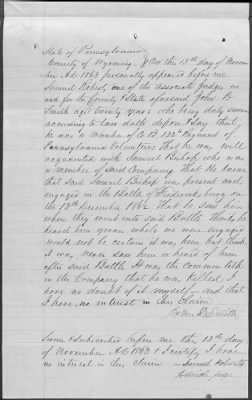 State of Pennsylvania
County of Wyoming. On the 13th day of Novem
ber AD 1863 personally appeared before me
Samuel Roberts, one of the associate Judges in
and for the County & State aforesaid John B
Smith age twenty years who being duly sworn
according to Law doth depose & say that
he was a member of Co B 132d Regiment of
Pennsylvania Volunteers That he was well
acquainted with Samuel Bishop who was
a member of said Company That he knows
that said Samuel Bishop was present and
engaged in the Battle of Fredricksburg on
the 13th December 1862 That he saw him
when they went into said Battle thinks he
heard him groan while we were engaged
would not be certain it was him but think
it was, never saw him or heard of him
after said Battle It was the common talk
in the Company that he was killed I
have no doubt of it myself and that
I have no interest in this Claim
John B Smith
Sworn & subscribed before me the 13th day
of November AD 1863 & I certify I have
no interest in this Claim Samuel Roberts
Associate Judge